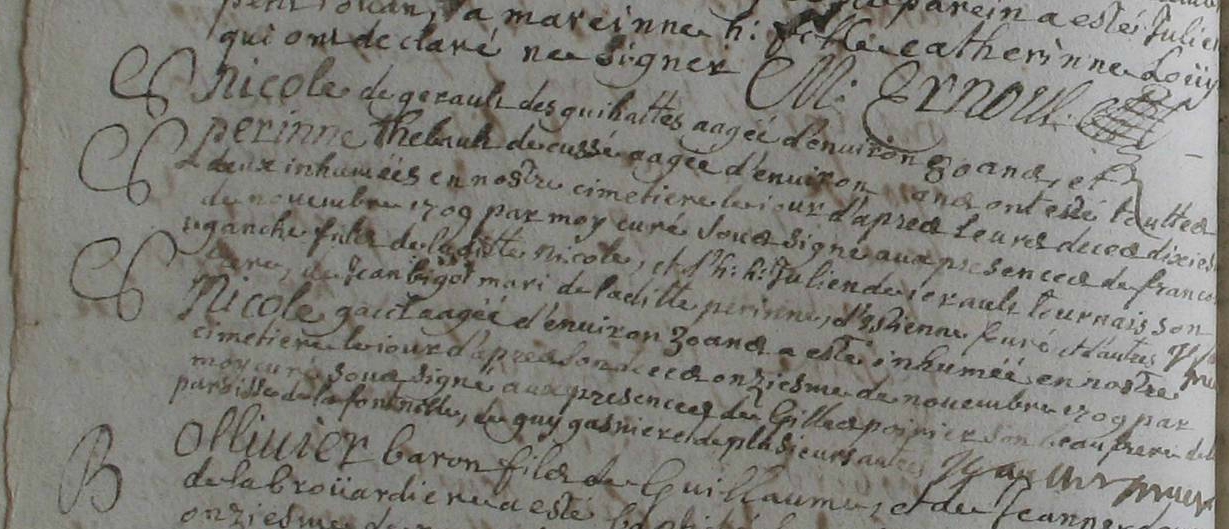 parein a esté Julien
la mareinne h: fille catherinne Loüy
qui ont declaré ne signer M: Ernoul
S Nicole de gerault des guihattes aagéé d'enuiron 30 ans, et
S perinne thebault de cussé aagéé d'enuiron ans ont esté touttes
deux inhuméés en nostre cimetiere le iour d'apres leurs deces dixies
de nouembre 1709 par moy curé sous signé aux presences de francois
uganche fils de laditte Nicole, et d'h: h: Julien de ierault tournais son
de Jean bigot mari de laditte perinne, d'estienne feuré et d'autres
S Nicole gaict aagéé d'enuiron 30 ans a esté inhuméé en nostre
cimetiere le iour d'apres son deces onziesme de nouembre 1709 par
moy curé sous signé aux presences de Gilles poirier son beau frere de la
paroisse de la fontnelle, de guy gasnier et de plusieurs autres
B Ollivier baron fils de Guillaume, et de Jeanne
de la broüardiere a esté baptisé
onziesme de